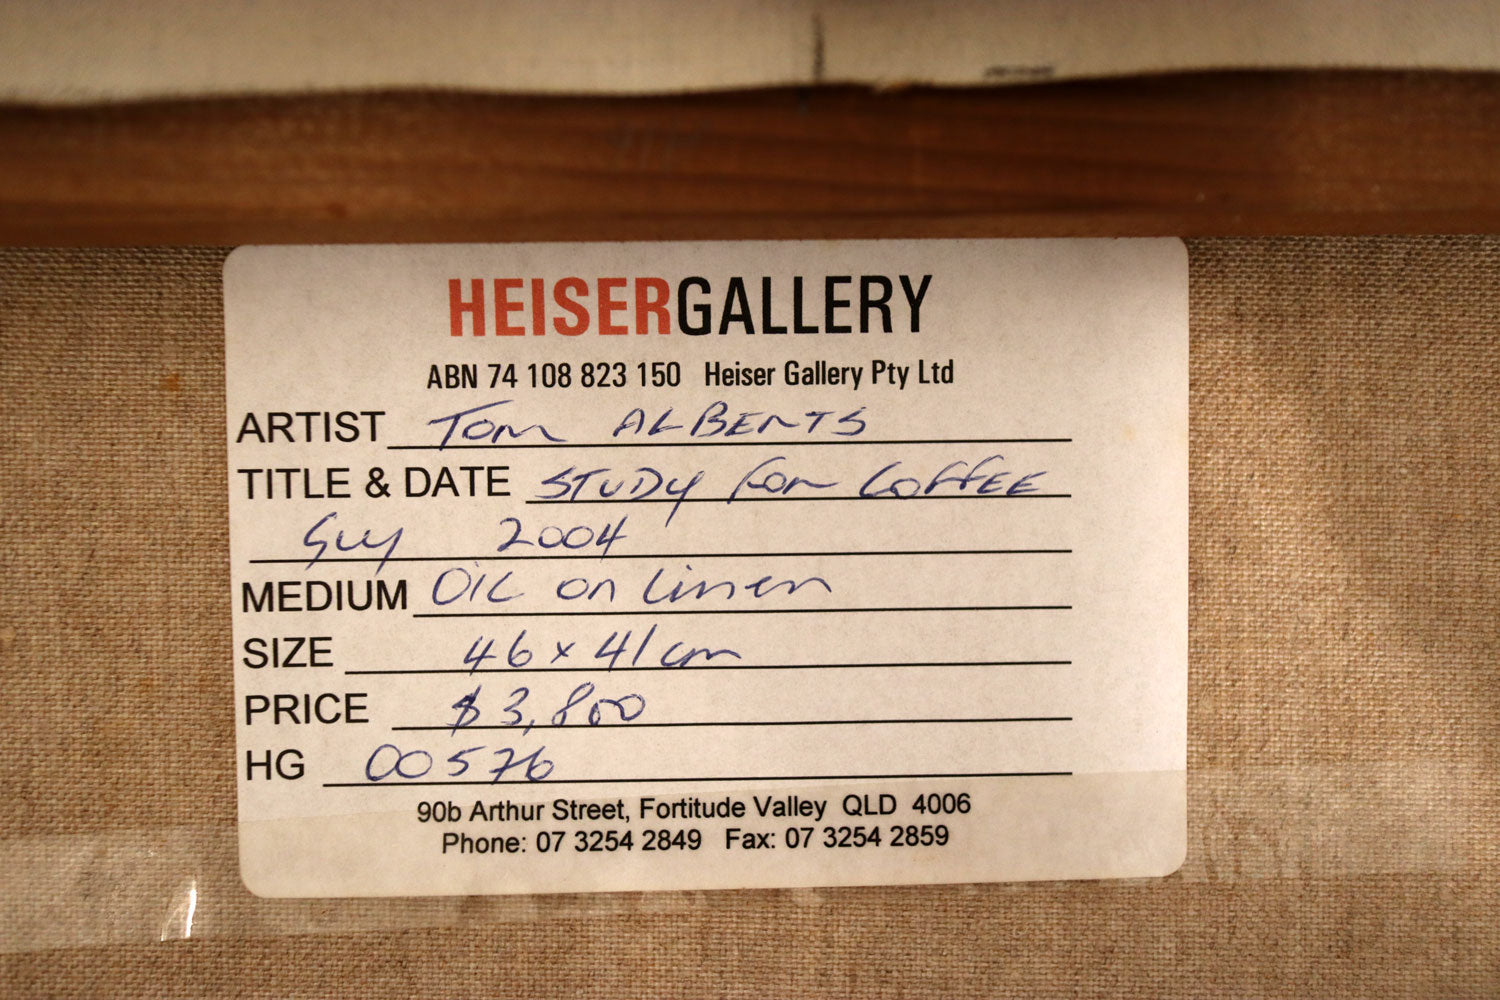 HEISERGALLERY
ABN 74 108 823 150 Heiser Gallery Pty Ltd
ARTIST Tom ALBERTS
TITLE & DATE STUDY FOR COFFEE
Guy 2004
MEDIUM OIL on Linen
SIZE 46 x 41 cm
PRICE $3,800
HG 00576
90b Arthur Street, Fortitude Valley QLD 4006
Phone: 07 3254 2849 Fax: 07 3254 2859